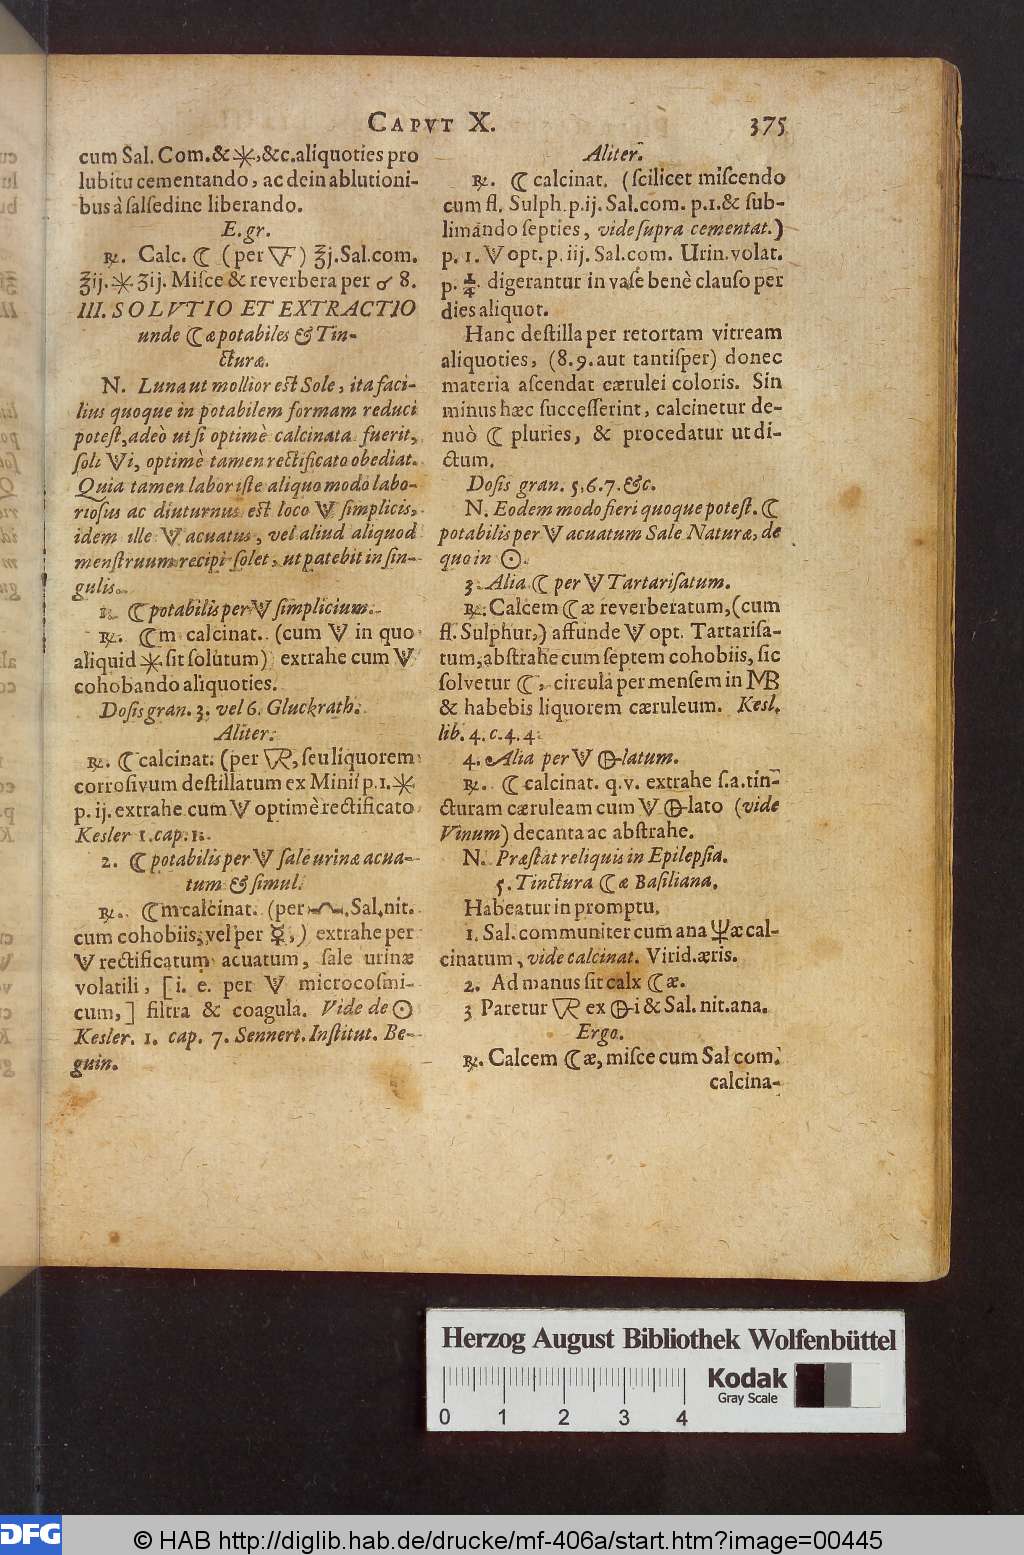 CAPVT X. 375
cum Sal. Com. & ✳, &c. aliquoties pro
lubitu cementando, ac dein ablutioni-
bus à salsedine liberando.
E. gr.
℞. Calc. ☾ (per ) ℥j. Sal. com.
℥ij. ✳ ʒij. Misce & reverbera per 8.
III. SOLVTIO ET EXTRACTIO
unde ☾æ potabiles & Tin-
cturæ.
N. Luna ut mollior est Sole, ita faci-
lius quoque in potabilem formam reduci
potest, adeò ut si optimè calcinata fuerit,
soli Vi, optimè tamen rectificato obediat.
Quia tamen labor iste aliquo modo labo-
riosus ac diuturnus est loco V simplicis,
idem ille V acuatus, vel aliud aliquod
menstruum recipi solet, ut patebit in sin-
gulis.
1. ☾ potabilis per V simplicium.
℞. ☾m calcinat. (cum V in quo
aliquid ✳ sit solutum) extrahe cum V
cohobando aliquoties.
Dosis gran. 3. vel 6. Gluckrath.
Aliter.
℞. ☾ calcinat. (per VR, seu liquorem
corrosivum destillatum ex Minii p. 1. ✳
p. ij. extrahe cum V optimè rectificato
Kesler 1. cap. 1.
2. ☾ potabilis per V sale urinæ acua-
tum & simul.
℞. ☾m calcinat. (per . Sal. nit.
cum cohobiis, vel per ☿,) extrahe per
V rectificatum acuatum, sale urinæ
volatili, [i. e. per V microcosmi-
cum,] filtra & coagula. Vide de ☉
Kesler. 1. cap. 7. Sennert. Institut. Be-
guin.
Aliter.
℞. ☾ calcinat. (scilicet miscendo
cum fl. Sulph. p. ij. Sal. com. p. 1. & sub-
limando septies, vide supra cementat.)
p. 1. V opt. p. iij. Sal. com. Urin. volat.
p. 1/4. digerantur in vase benè clauso per
dies aliquot.
Hanc destilla per retortam vitream
aliquoties, (8. 9. aut tantisper) donec
materia ascendat cærulei coloris. Sin
minus hæc successerint, calcinetur de-
nuò ☾ pluries, & procedatur ut di-
ctum.
Dosis gran. 5. 6. 7. &c.
N. Eodem modo fieri quoque potest. ☾
potabilis per V acuatum Sale Naturæ, de
quo in ☉.
3. Alia ☾ per V Tartarisatum.
℞. Calcem ☾æ reverberatum, (cum
fl. Sulphur,) affunde V opt. Tartarisa-
tum, abstrahe cum septem cohobiis, sic
solvetur ☾, circula per mensem in MB
& habebis liquorem cæruleum. Kesl.
lib. 4. c. 4. 4.
4. Alia per V -latum.
℞. ☾ calcinat. q. v. extrahe s. a. tin-
cturam cæruleam cum V -lato (vide
Vinum) decanta ac abstrahe.
N. Præstat reliquis in Epilepsia.
5. Tinctura ☾æ Basiliana.
Habeatur in promptu.
1. Sal. communiter cum ana æ cal-
cinatum, vide calcinat. Virid. æris.
2. Ad manus sit calx ☾æ.
3 Paretur VR ex -i & Sal. nit. ana.
Ergo.
℞. Calcem ☾æ, misce cum Sal com.
calcina-
Herzog August Bibliothek Wolfenbüttel
Kodak
Gray Scale
0 1 2 3 4
DFG
© HAB http://diglib.hab.de/drucke/mf-406a/start.htm?image=00445